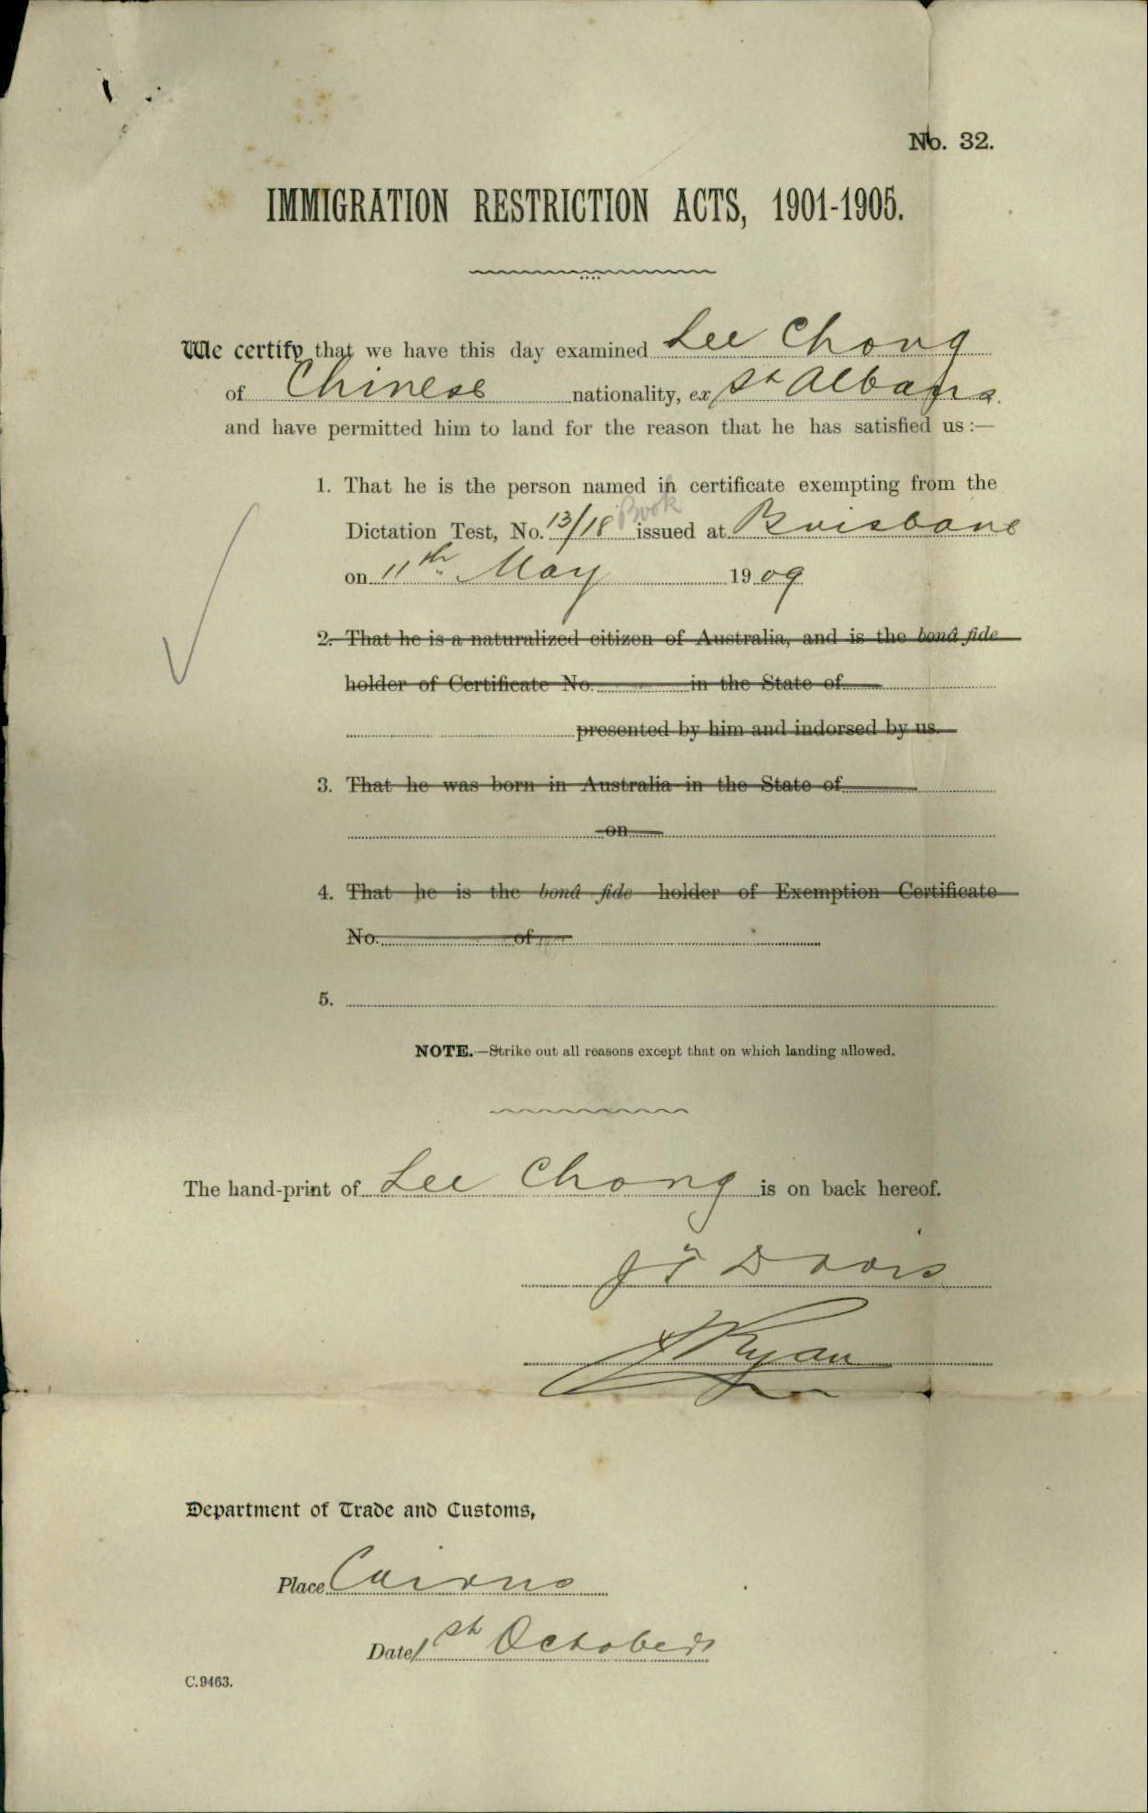 No. 32.
IMMIGRATION RESTRICTION ACTS, 1901-1905.
We certify that we have this day examined Lee Chong
of Chinese nationality, ex St Albans
and have permitted him to land for the reason that he has satisfied us :—
1. That he is the person named in certificate exempting from the
Book
Dictation Test, No. 13/18 issued at Brisbane
on 11th May 1909
2. That he is a naturalized citizen of Australia, and is the bonâ fide
holder of Certificate No. in the State of
presented by him and indorsed by us.
3. That he was born in Australia in the State of
on
4. That he is the bonâ fide holder of Exemption Certificate
No. of
5.
NOTE.—Strike out all reasons except that on which landing allowed.
The hand-print of Lee Chong is on back hereof.
J T Davis
J Ryan
Department of Trade and Customs,
Place Cairns
Date 1st October
C.9463.